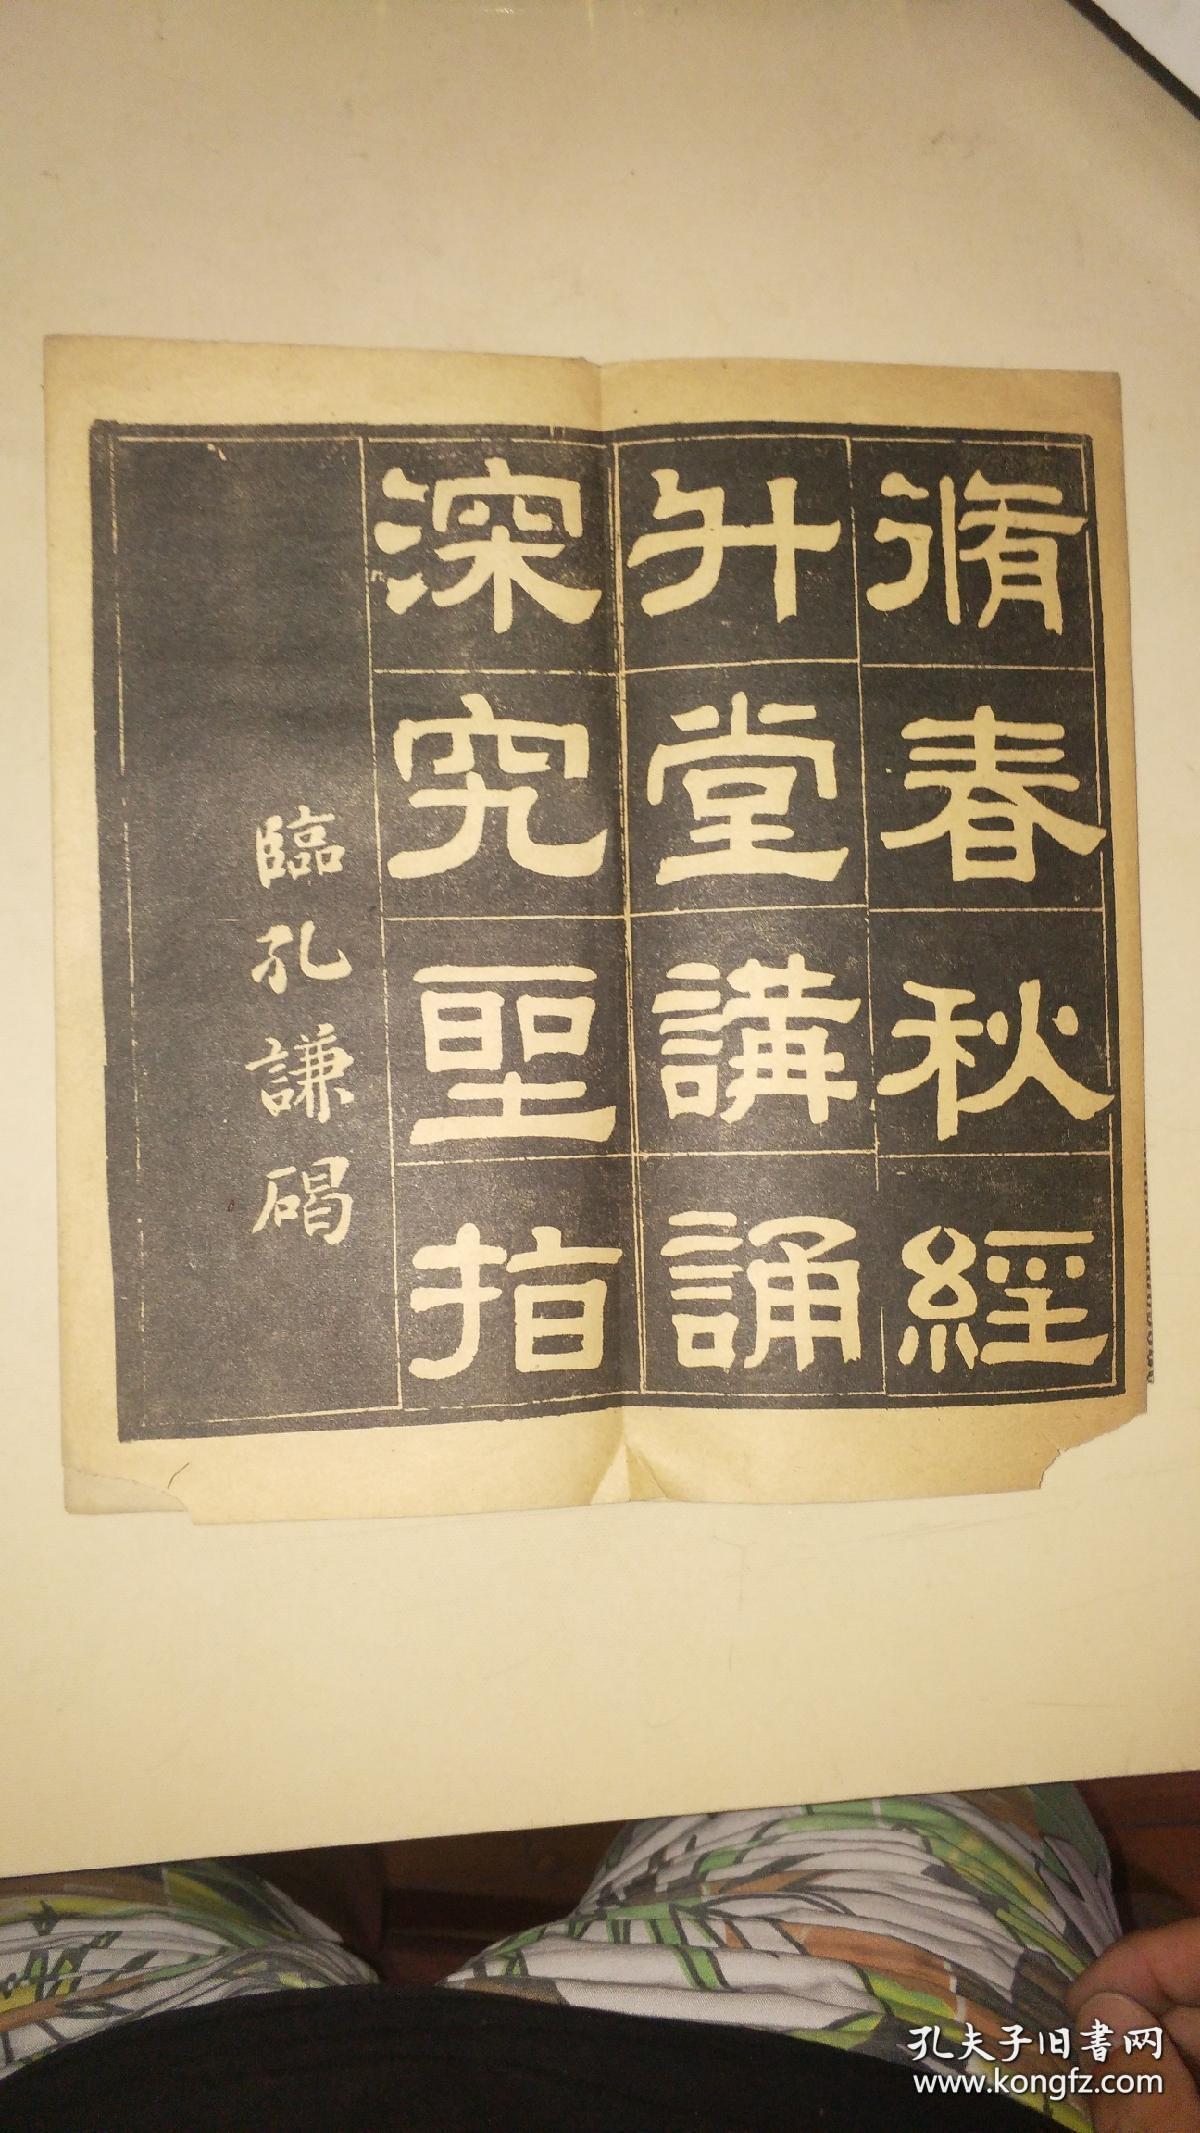 脩春秋經
升堂講誦
深究聖指
臨孔謙碣
孔夫子旧書网
www.kongfz.com